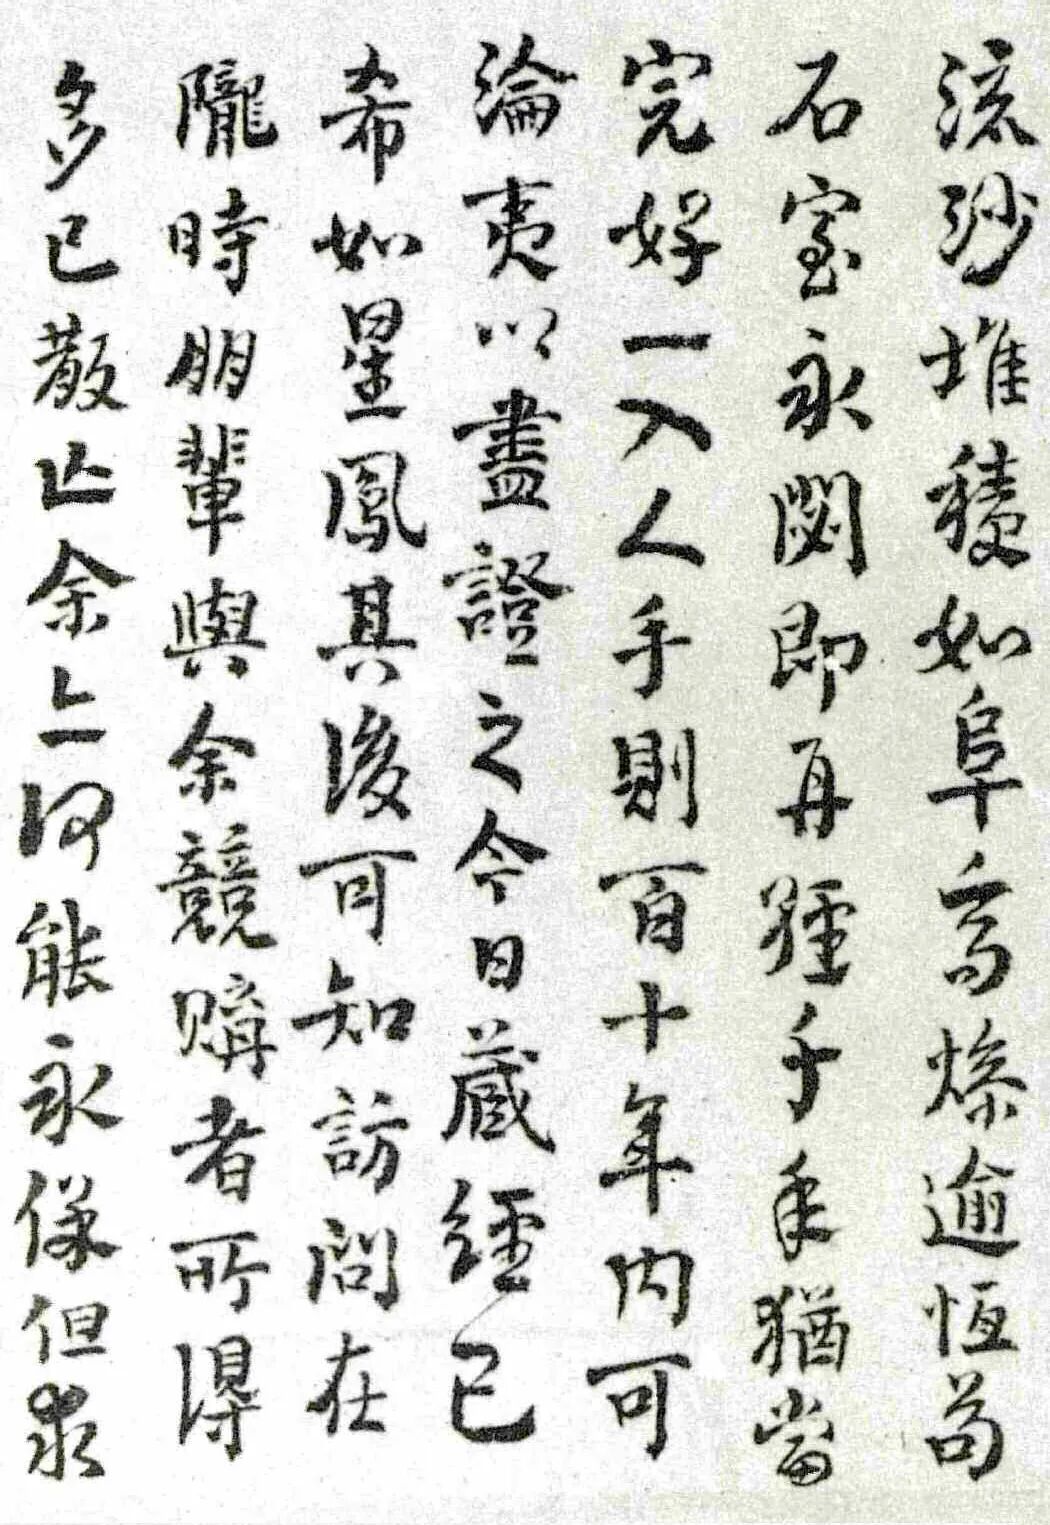 流沙堆積如阜高燥逾恆苟
石室永閟即再經千年猶當
完好一入人手則百十年內可
淪夷以盡證之今日藏經已
希如星鳳其後可知訪問在
隴時朋輩與余競購者所得
多已散亡余亡何能永保但求